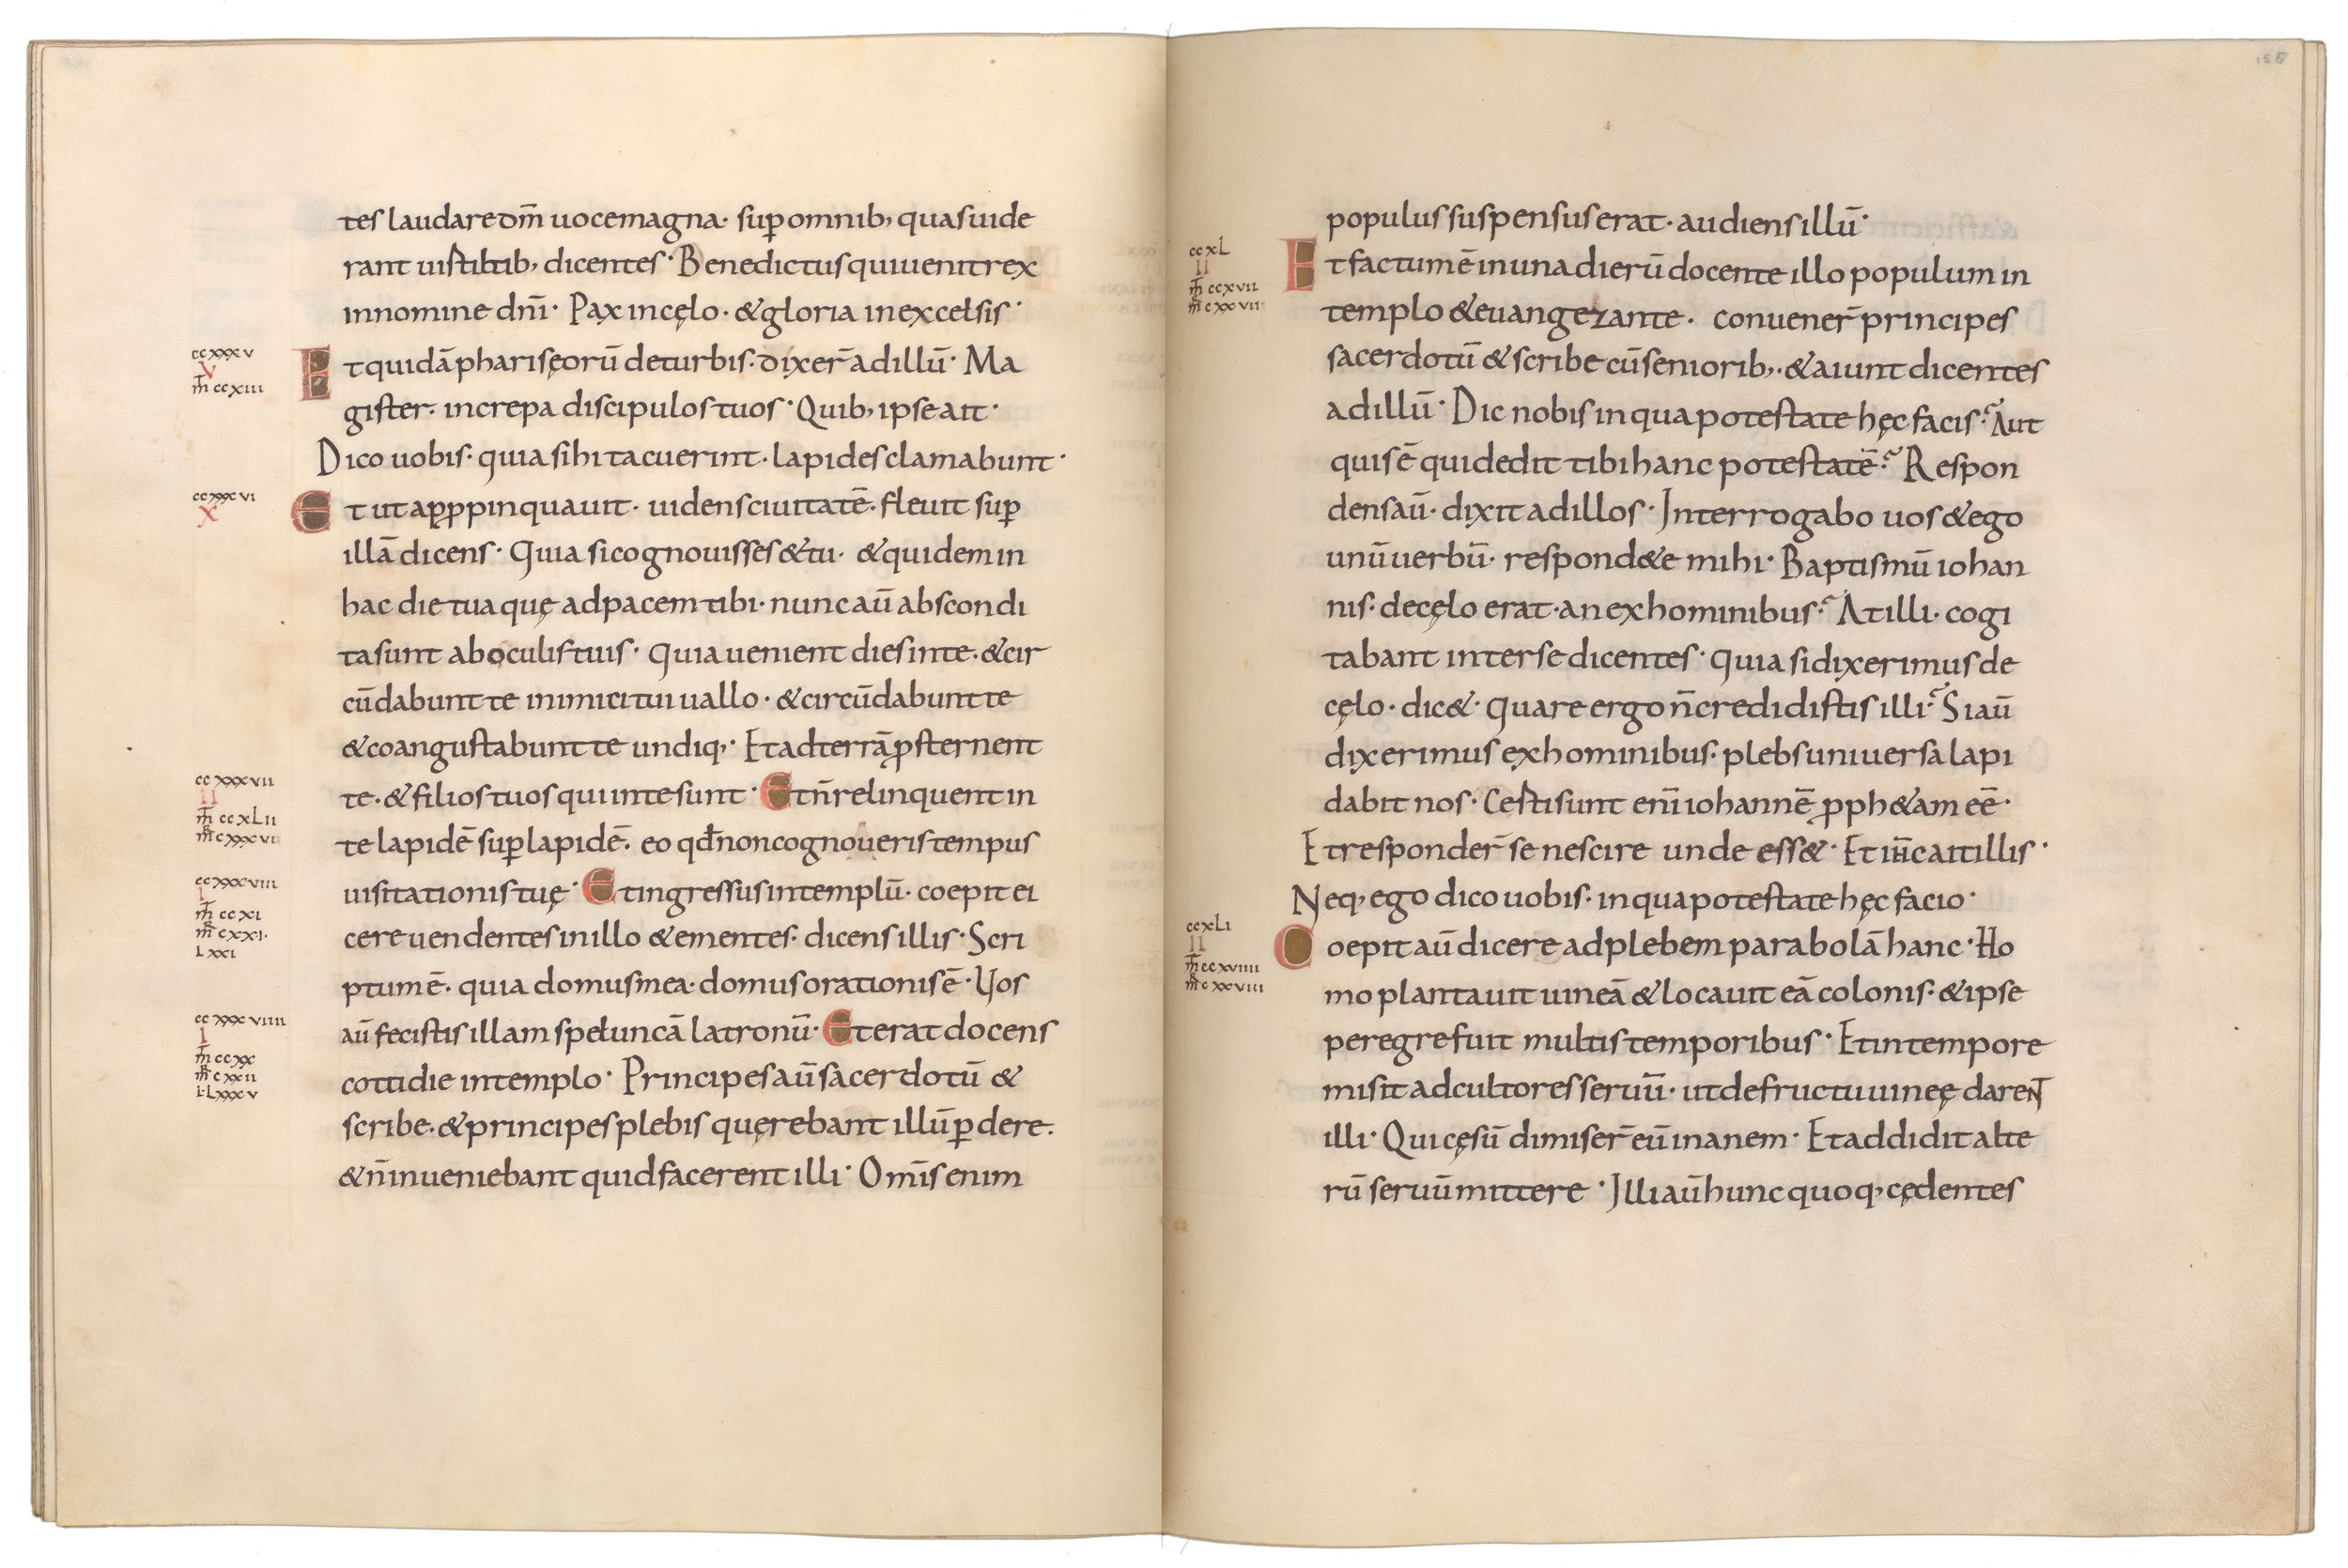 tes laudare dm̄ uoce magna· sup̄ omnib; quas uide
rant uirtutib; dicentes· Benedictus qui uenit rex
in nomine dnī· Pax in cęlo· & gloria in excelsis·
ccxxxv
v
m̄ ccxiii
Et quidā pharisęorū de turbis· dixer̄ ad illū· Ma
gister· increpa discipulos tuos· Quib; ipse ait·
Dico uobis· quia si hi tacuerint· lapides clamabunt·
ccxxxvi
x
Et ut appropinquauit· uidens ciuitatē· fleuit sup̄
illā dicens· Quia si cognouisses & tu· & quidem in
hac die tua quę ad pacem tibi· nunc aū abscondi
ta sunt ab oculis tuis· Quia uenient dies in te· & cir
cūdabunt te inimici tui uallo· & circūdabunt te
& coangustabunt te undiq;· Et ad terrā ꝓsternent
ccxxxvii
ii
m̄ ccxlii
mr̄ cxxxvi
te· & filios tuos qui in te sunt· Et n̄ relinquent in
te lapidē sup̄ lapidē· eo qđ non cognoueris tempus
ccxxxviii
i
m̄ ccxi
mr̄ cxxi·
lxxi
uisitationis tuę· Et ingressus in templū· coepit ei
cere uendentes in illo & ementes· dicens illis· Scri
ptum ē· quia domus mea· domus orationis ē· Uos
ccxxxviiii
i
m̄ ccxx
mr̄ cxxii
i· lxxxv
aū fecistis illam speluncā latronū· Et erat docens
cottidie in templo· Principes aū sacerdotū &
scribe· & principes plebis quęrebant illū ꝑdere·
& n̄ inueniebant quid facerent illi· Omīs enim
populus suspensus erat· audiens illū·
ccxl
ii
m̄ ccxvii
mr̄ cxxvii
Et factum ē in una dierū docente illo populum in
templo & euangezante· conuener̄ principes
sacerdotū & scribe cū seniorib;· & aiunt dicentes
ad illū· Dic nobis in qua potestate hęc facis? Aut
quis ē qui dedit tibi hanc potestatē? Respon
dens aū· dixit ad illos· Interrogabo uos & ego
unū uerbū· respond&e mihi· Baptismū iohan
nis· de cęlo erat· an ex hominibus? At illi· cogi
tabant inter se dicentes· Quia si dixerimus de
cęlo· dic&· Quare ergo n̄ credidistis illi? Si aū
dixerimus ex hominibus· plebs uniuersa lapi
dabit nos· Certi sunt enī iohannē ꝓph&am eē·
Et responder̄ se nescire unde ess&· Et ih̄c ait illis·
Neq; ego dico uobis· in qua potestate hęc facio·
ccxli
ii
m̄ ccxviiii
mr̄ cxxviii
Coepit aū dicere ad plebem parabolā hanc· Ho
mo plantauit uineā & locauit eā colonis· & ipse
peregre fuit multis temporibus· Et in tempore
misit ad cultores seruū· ut de fructu uineę darent
illi· Qui cęsū dimiser̄ eū inanem· Et addidit alte
rū seruū mittere· Illi aū hunc quoq; cędentes